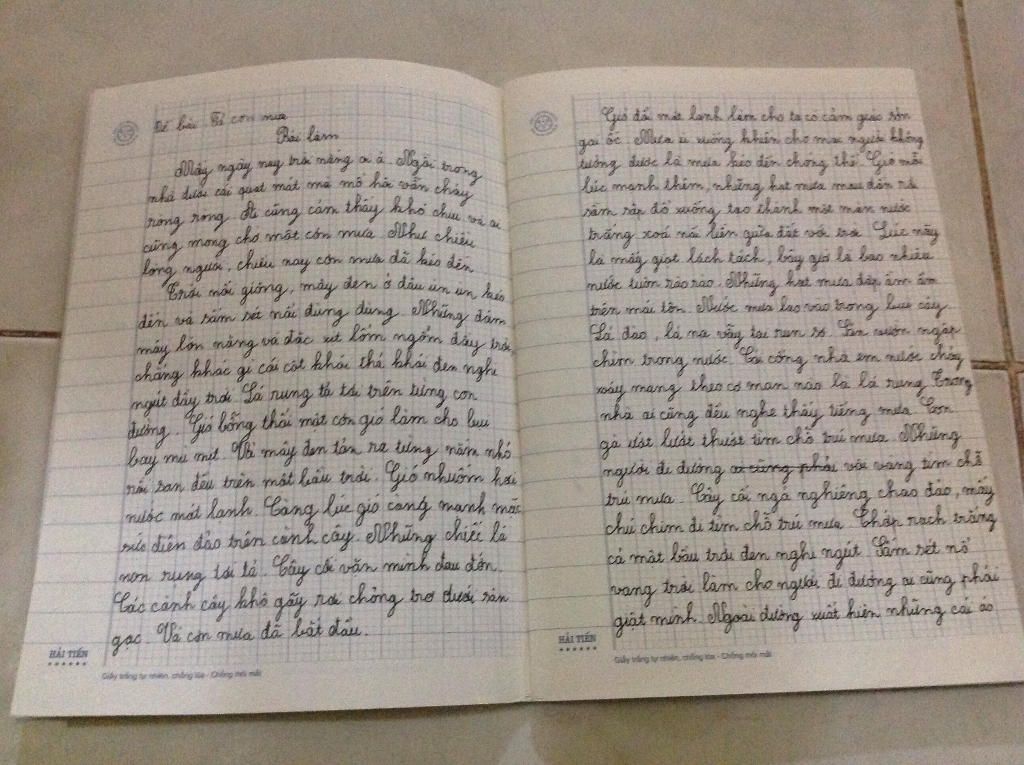 Đề bài Tả cơn mưa
Bài làm
Mấy ngày nay trời nắng oi ả. Ngồi trong
nhà dưới cái quạt mát mà mồ hôi vẫn chảy
ròng ròng. Ai cũng cảm thấy khó chịu và ai
cũng mong chờ một cơn mưa. Như chiều
lòng người, chiều nay cơn mưa đã kéo đến.
Trời nổi giông, mây đen ở đâu ùn ùn kéo
đến và sấm sét nổi đùng đùng. Những đám
mây lớn nặng và đặc xịt lổm ngổm đầy trời
chẳng khác gì cái cột khói thả khói đen nghi
ngút đầy trời. Lá rụng tả tơi trên từng con
đường. Gió bỗng thổi một cơn gió làm cho bụi
bay mù mịt. Và mây đen tản ra từng nắm nhỏ
rồi san đều trên mặt bầu trời. Gió nhuốm hơi
nước mát lạnh. Càng lúc gió càng mạnh mặc
sức điên đảo trên cành cây. Những chiếc lá
non rụng tơi tả. Cây cối vặn mình đau đớn.
Các cành cây khô gãy rơi chỏng trơ dưới sàn
gạc. Và cơn mưa đã bắt đầu.
HẢI TIẾN
Giấy trắng tự nhiên, chống lóa - Chống mỏi mắt
Gió đổi mát lạnh làm cho ta có cảm giác sởn
gai ốc. Mưa ù xuống khiến cho mọi người không
tưởng được là mưa kéo đến chóng thế. Gió mỗi
lúc mạnh thêm, những hạt mưa mau dần rồi
sầm sập đổ xuống tạo thành một màn nước
trắng xoá nối liền giữa đất với trời. Lúc nãy
là mấy giọt lách tách, bây giờ là bao nhiêu
nước tuôn rào rào. Những hạt mưa đập ầm ầm
trên mái tôn. Nước mưa lao vào trong bụi cây.
Lá đào, lá na vẫy tai run sợ. Sân vườn ngập
chìm trong nước. Cái cống nhà em nước chảy
xoáy mang theo cơ man nào là lá rụng. Trong
nhà ai cũng đều nghe thấy tiếng mưa. Con
gà ướt lướt thướt tìm chỗ trú mưa. Những
người đi đường ai cũng phải vội vàng tìm chỗ
trú mưa. Cây cối ngả nghiêng chao đảo, mấy
chú chim đi tìm chỗ trú mưa. Chớp rạch trắng
cả mặt bầu trời đen nghi ngút. Sấm sét nổ
vang trời làm cho người đi đường ai cũng phải
giật mình. Ngoài đường xuất hiện những cái áo
HẢI TIẾN
Giấy trắng tự nhiên, chống lóa - Chống mỏi mắt